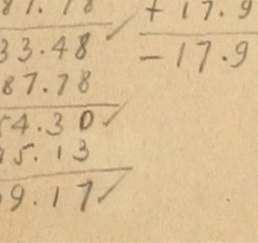 87.78 + 17.9
33.48 ✓ - 17.9
87.78
54.30 ✓
45.13
9.17 ✓